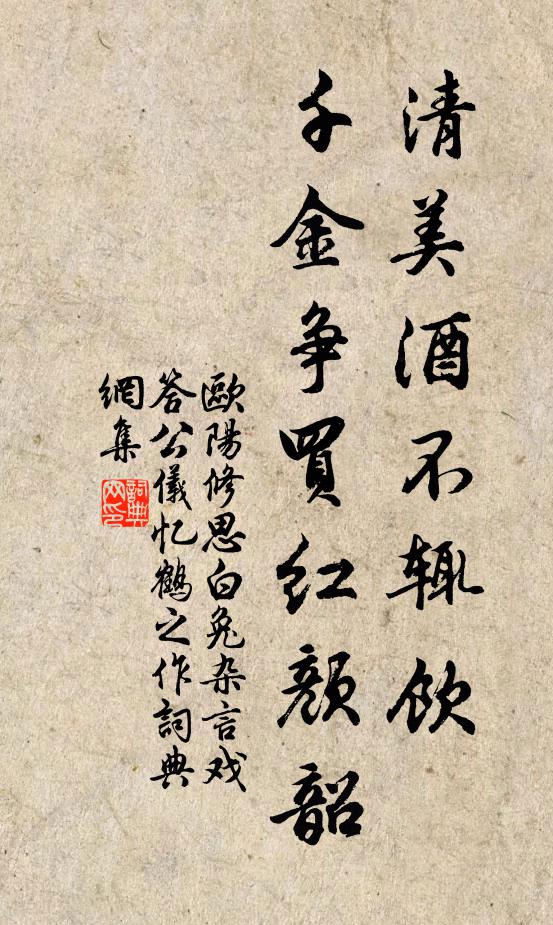 清美酒不辄饮
千金争買红颜韶
歐陽修思白兔杂言戏
答公儀忆鶴之作詞典
網集
詞典
网印